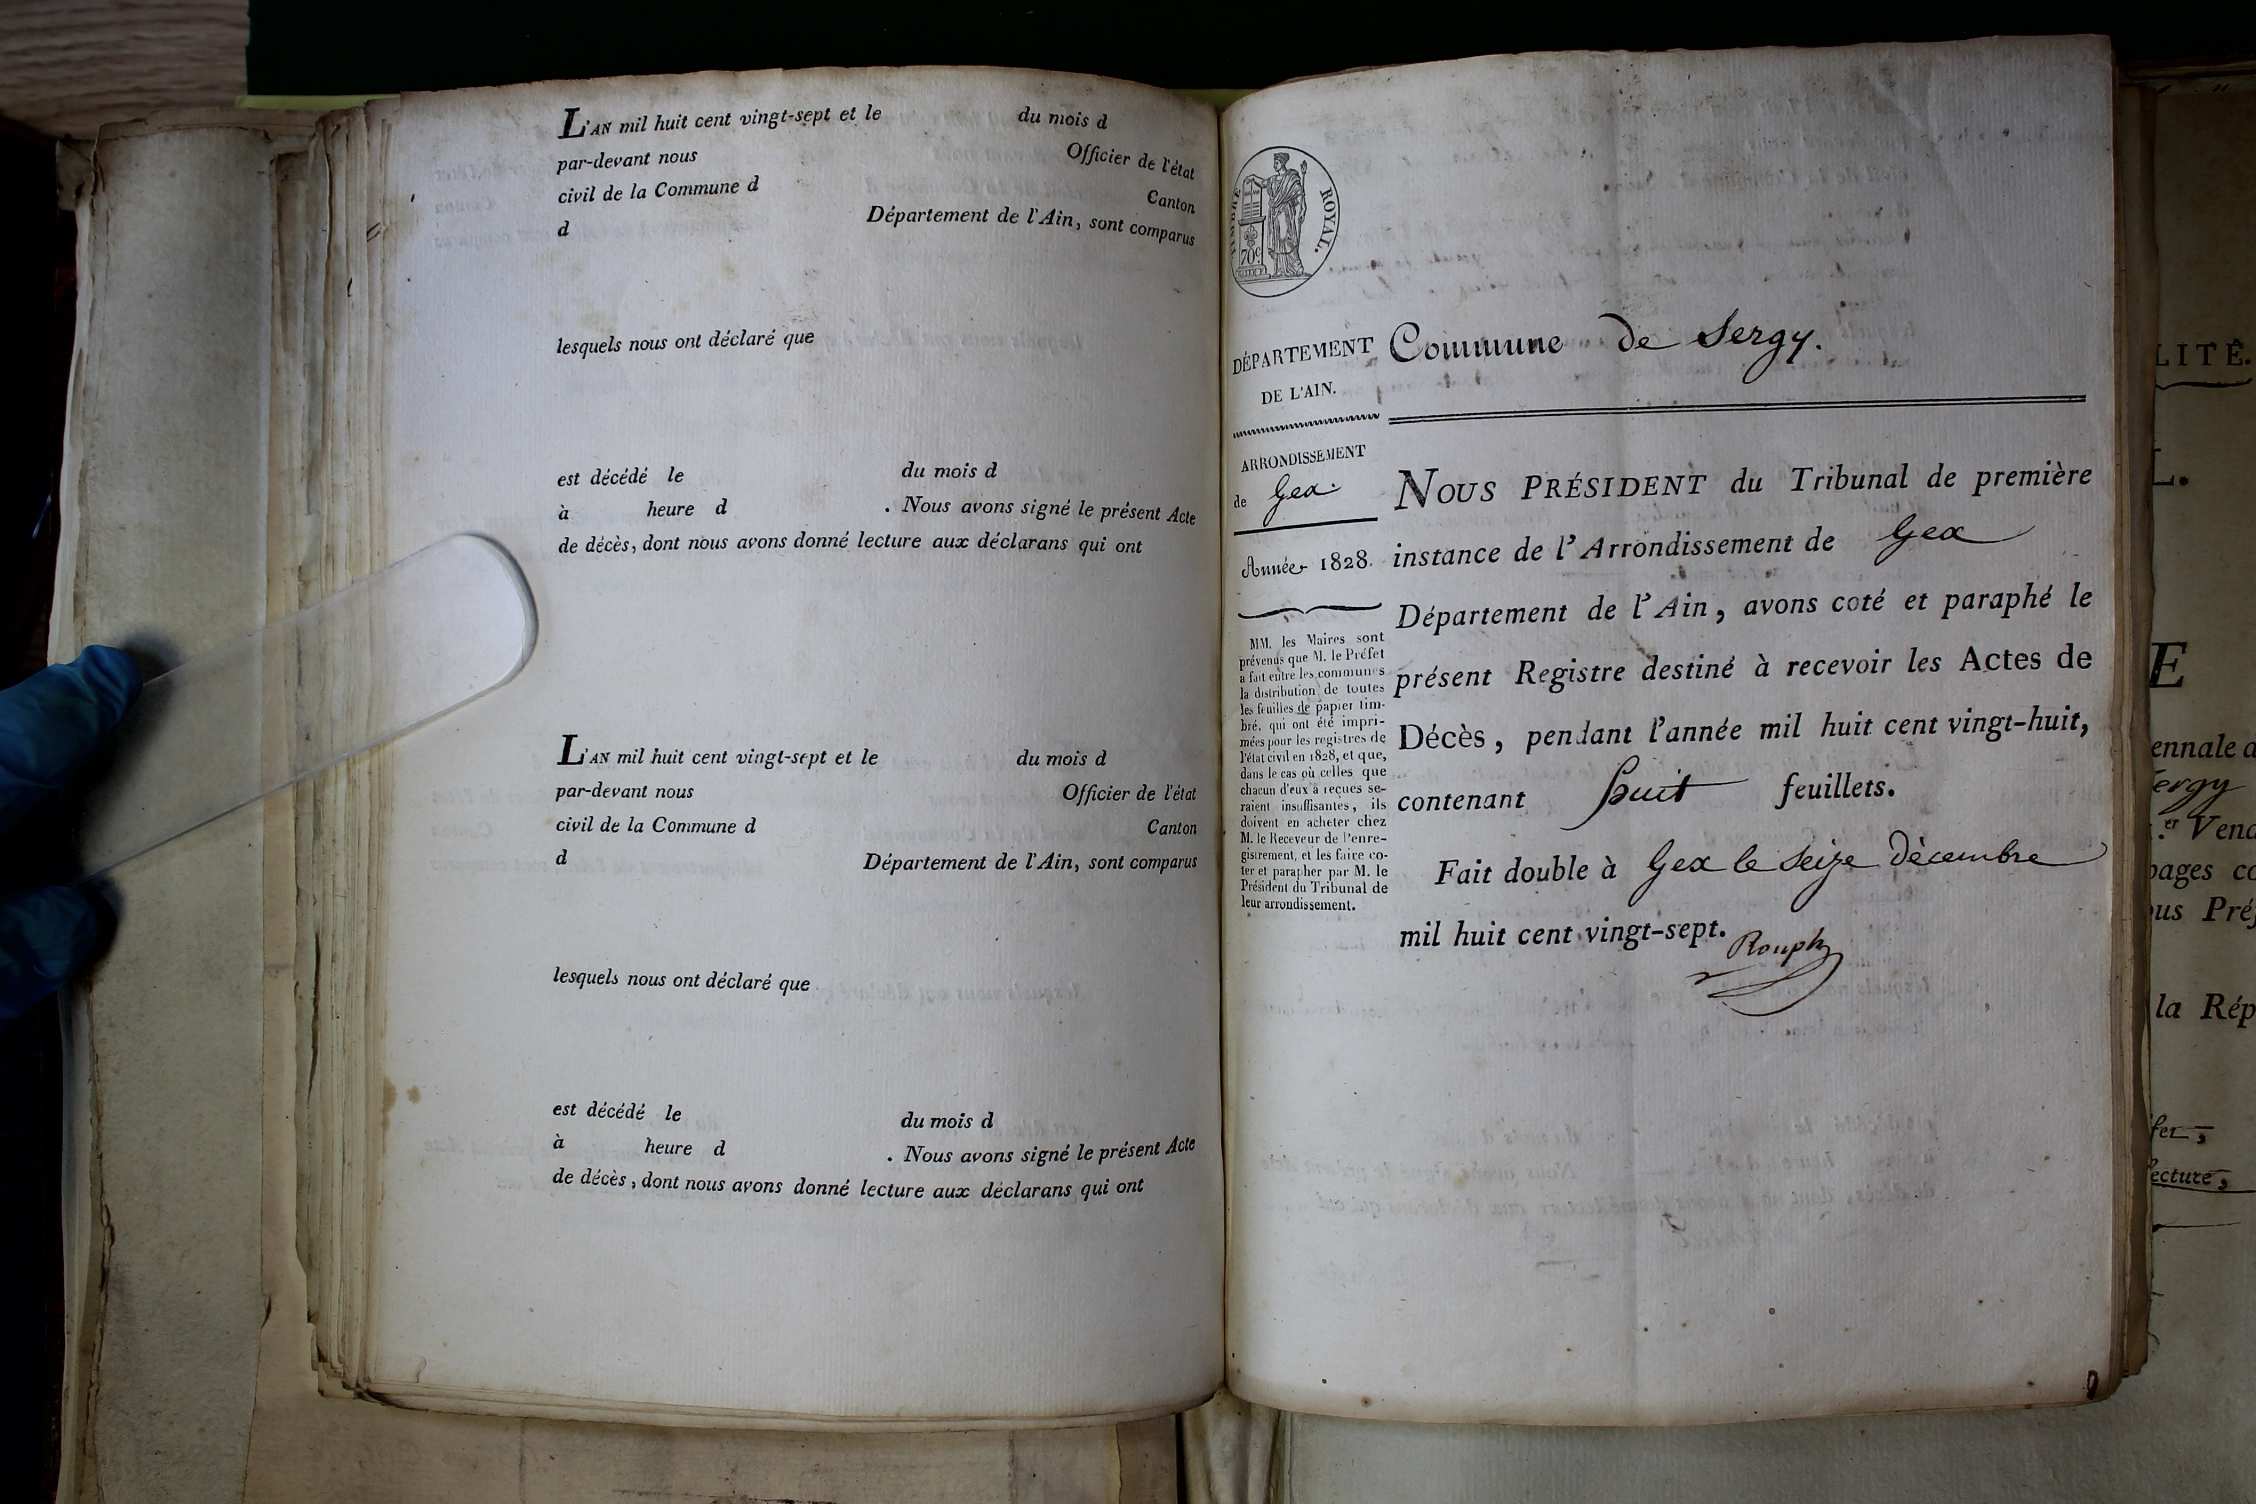 L'AN mil huit cent vingt-sept et le du mois d
par-devant nous Officier de l'état
civil de la Commune d Canton
d Département de l'Ain, sont comparus
lesquels nous ont déclaré que
est décédé le du mois d
à heure d . Nous avons signé le présent Acte
de décès, dont nous avons donné lecture aux déclarans qui ont
L'AN mil huit cent vingt-sept et le du mois d
par-devant nous Officier de l'état
civil de la Commune d Canton
d Département de l'Ain, sont comparus
lesquels nous ont déclaré que
est décédé le du mois d
à heure d . Nous avons signé le présent Acte
de décès, dont nous avons donné lecture aux déclarans qui ont
TIMBRE ROYAL.
70c.
DÉPARTEMENT
DE L'AIN.
ARRONDISSEMENT
de Gex.
Année 1828.
MM. les Maires sont
prévenus que M. le Préfet
a fait entre les communes
la distribution de toutes
les feuilles de papier tim-
bré, qui ont été impri-
mées pour les registres de
l'état civil en 1828, et que,
dans le cas où celles que
chacun d'eux a reçues se-
raient insuffisantes, ils
doivent en acheter chez
M. le Receveur de l'enre-
gistrement, et les faire co-
ter et parapher par M. le
Président du Tribunal de
leur arrondissement.
Commune de Sergy.
NOUS PRÉSIDENT du Tribunal de première
instance de l'Arrondissement de Gex
Département de l'Ain, avons coté et paraphé le
présent Registre destiné à recevoir les Actes de
Décès, pendant l'année mil huit cent vingt-huit,
contenant huit feuillets.
Fait double à Gex le seize décembre
mil huit cent vingt-sept.
Rouph
LITÉ.
L.
E
ennale d
ergy
.er Vend
pages co
ous Préf
la Rép
fet,
ecture,